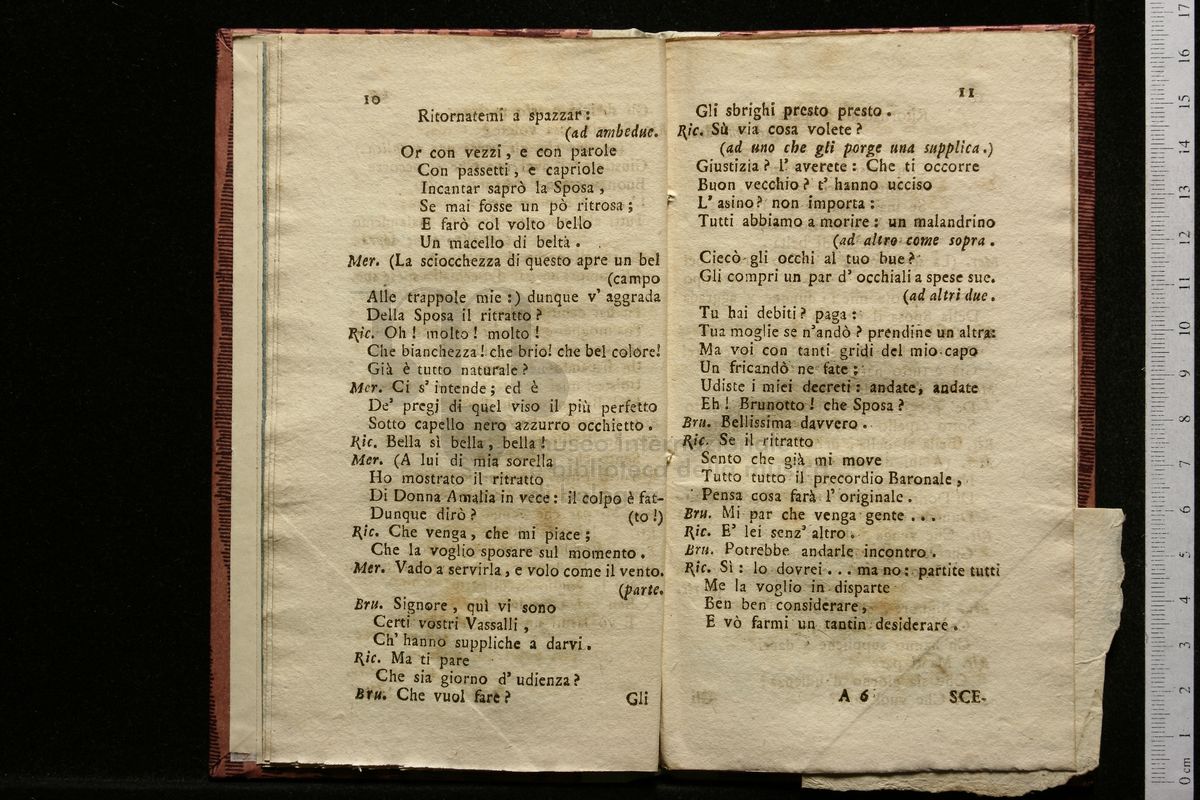 10
Ritornatemi a spazzar:
(ad ambedue.
Or con vezzi, e con parole
Con passetti, e capriole
Incantar saprò la Sposa,
Se mai fosse un pò ritrosa;
E farò col volto bello
Un macello di beltà.
Mer. (La sciocchezza di questo apre un bel
(campo
Alle trappole mie:) dunque v' aggrada
Della Sposa il ritratto?
Ric. Oh! molto! molto!
Che bianchezza! che brio! che bel colore!
Già è tutto naturale?
Mer. Ci s' intende; ed è
De' pregj di quel viso il più perfetto
Sotto capello nero azzurro occhietto.
Ric. Bella sì bella, bella!
Mer. (A lui di mia sorella
Ho mostrato il ritratto
Di Donna Amalia in vece: il colpo è fat-
Dunque dirò? (to!)
Ric. Che venga, che mi piace;
Che la voglio sposare sul momento.
Mer. Vado a servirla, e volo come il vento.
(parte.
Bru. Signore, quì vi sono
Certi vostri Vassalli,
Ch' hanno suppliche a darvi.
Ric. Ma ti pare
Che sia giorno d' udienza?
Bru. Che vuol fare? Gli
11
Gli sbrighi presto presto.
Ric. Sù via cosa volete?
(ad uno che gli porge una supplica.)
Giustizia? l' averete: Che ti occorre
Buon vecchio? t' hanno ucciso
L' asino? non importa:
Tutti abbiamo a morire: un malandrino
(ad altro come sopra.
Ciecò gli occhi al tuo bue?
Gli compri un par d' occhiali a spese sue.
(ad altri due.
Tu hai debiti? paga:
Tua moglie se n'andò? prendine un altra:
Ma voi con tanti gridi del mio capo
Un fricandò ne fate;
Udiste i miei decreti: andate, andate
Eh! Brunotto! che Sposa?
Bru. Bellissima davvero.
Ric. Se il ritratto
Sento che già mi move
Tutto tutto il precordio Baronale,
Pensa cosa farà l' originale.
Bru. Mi par che venga gente...
Ric. E' lei senz' altro.
Bru. Potrebbe andarle incontro.
Ric. Sì: lo dovrei... ma no: partite tutti
Me la voglio in disparte
Ben ben considerare,
E vò farmi un tantin desiderare.
A 6 SCE-